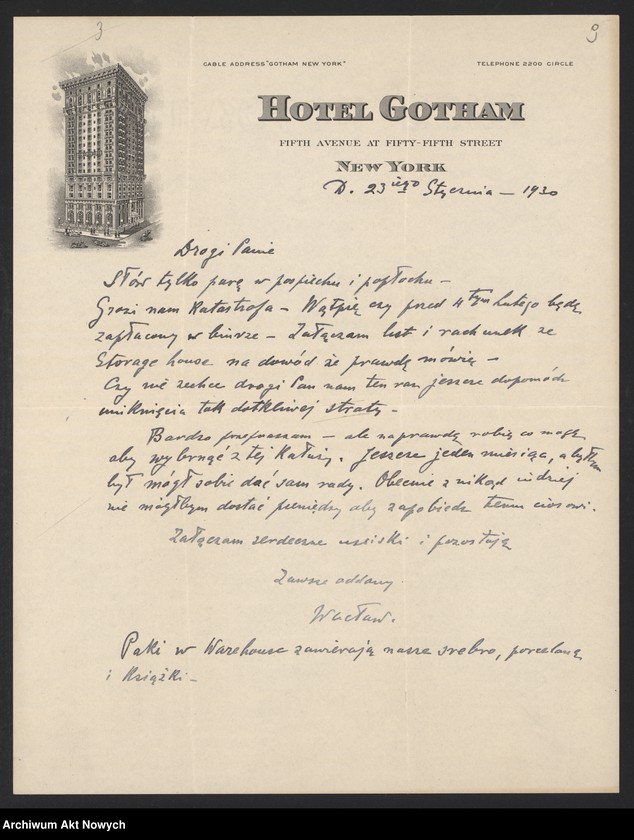 3
9
CABLE ADDRESS "GOTHAM NEW YORK"
TELEPHONE 2200 CIRCLE
HOTEL GOTHAM
FIFTH AVENUE AT FIFTY-FIFTH STREET
NEW YORK
D. 23iego Stycznia — 1930
Drogi Panie
Słów tylko parę w pośpiechu i popłochu —
Grozi nam Katastrofa — Wątpię czy przed 4tym lutego będę
zapłacony w biurze — Załączam list i rachunek ze
Storage house na dowód że prawdę mówię —
Czy nie zechce drogi Pan nam ten raz jeszcze dopomódz
uniknięcia tak dotkliwej straty —
Bardzo przepraszam — ale naprawdę robię co mogę
aby wybrnąć z tej Kałuży. Jeszcze jeden miesiąc, a będę
był mógł sobie dać sam rady. Obecnie z nikąd indziej
nie mógłbym dostać pieniędzy aby zapobiedz temu ciosowi.
Załączam serdeczne uściski i pozostaję
Zawsze oddany.
Wacław.
Paki w Warehouse zawierają nasze srebro, porcelanę
i Książki —
Archiwum Akt Nowych